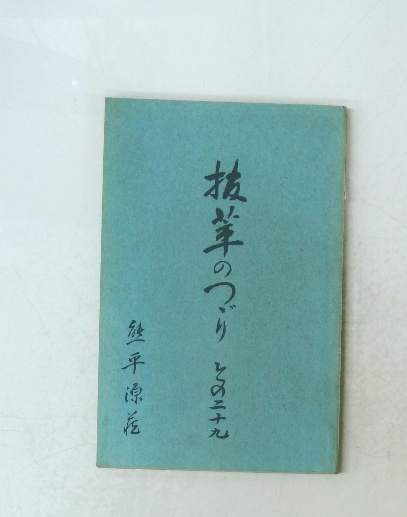 抜萃のつゞり その二十九
熊平源蔵